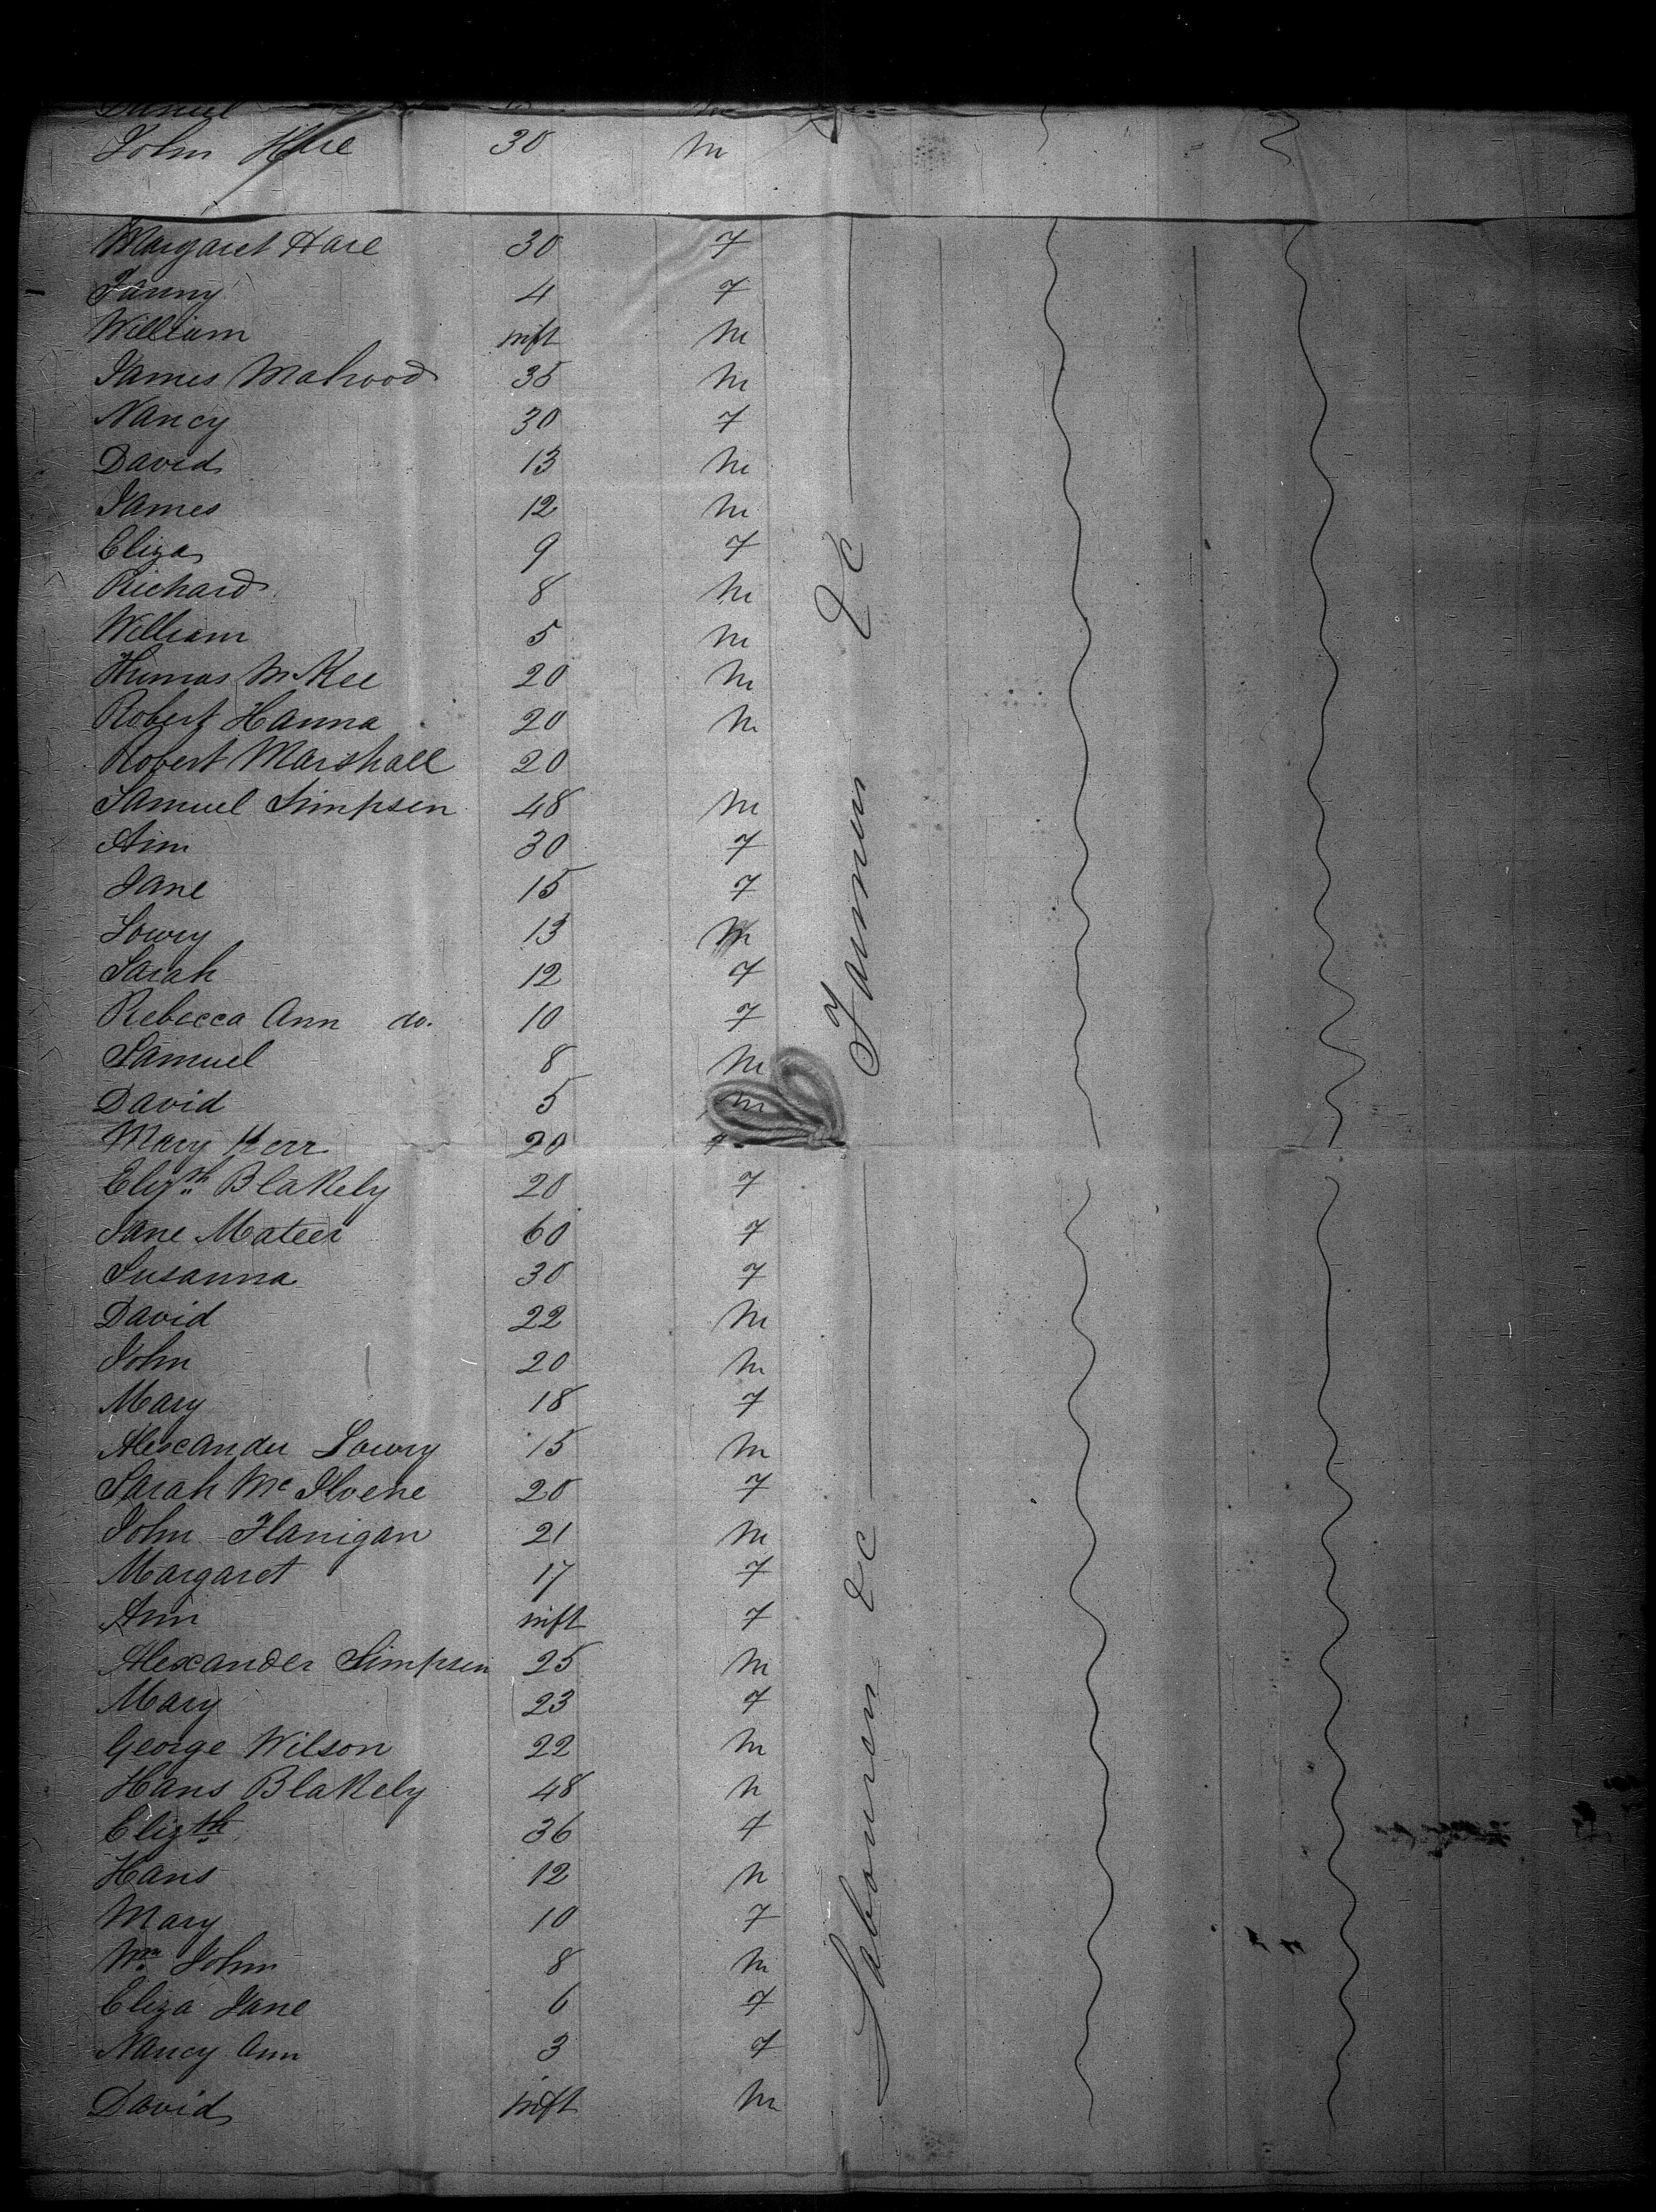 Daniel
John Hare 30 M
Margaret Hare 30 F
Fanny 4 F
William inft M
James Mahood 35 M
Nancy 30 F
David 13 M
James 12 M
Eliza 9 F
Richard 8 M
William 5 M
Thomas McKee 20 M
Robert Hanna 20 M
Robert Marshall 20
Samuel Simpson 48 M
Ann 30 F
Jane 15 F
Lowry 13 M
Sarah 12 F
Rebecca Ann do. 10 F
Samuel 8 M
David 5 M
Mary Kerr 20 F
Elizth Blakely 20 F
Jane Mateer 60 F
Susanna 30 F
David 22 M
John 20 M
Mary 18 F
Alexander Lowry 15 M
Sarah McIlvene 20 F
John Flanigan 21 M
Margaret 17 F
Ann inft F
Alexander Simpson 25 M
Mary 23 F
George Wilson 22 M
Hans Blakely 48 M
Elizth 36 F
Hans 12 M
Mary 10 F
Wm John 8 M
Eliza Jane 6 F
Nancy Ann 3 F
David inft M
Farmers &c
Labourers &c